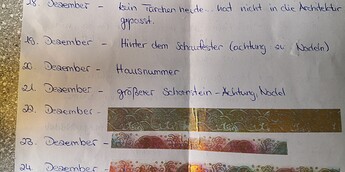 18. Dezember - kein Türchen heute.. hat nicht in die Architektur
gepasst.
19. Dezember - Hinter dem Schaufester (achtung zu Nadeln)
20 Dezember - Hausnummer
21. Dezember - größerer Schornstein - Achtung, Nadel
22. Dezember -
23. Dezember -
24. Dezember -